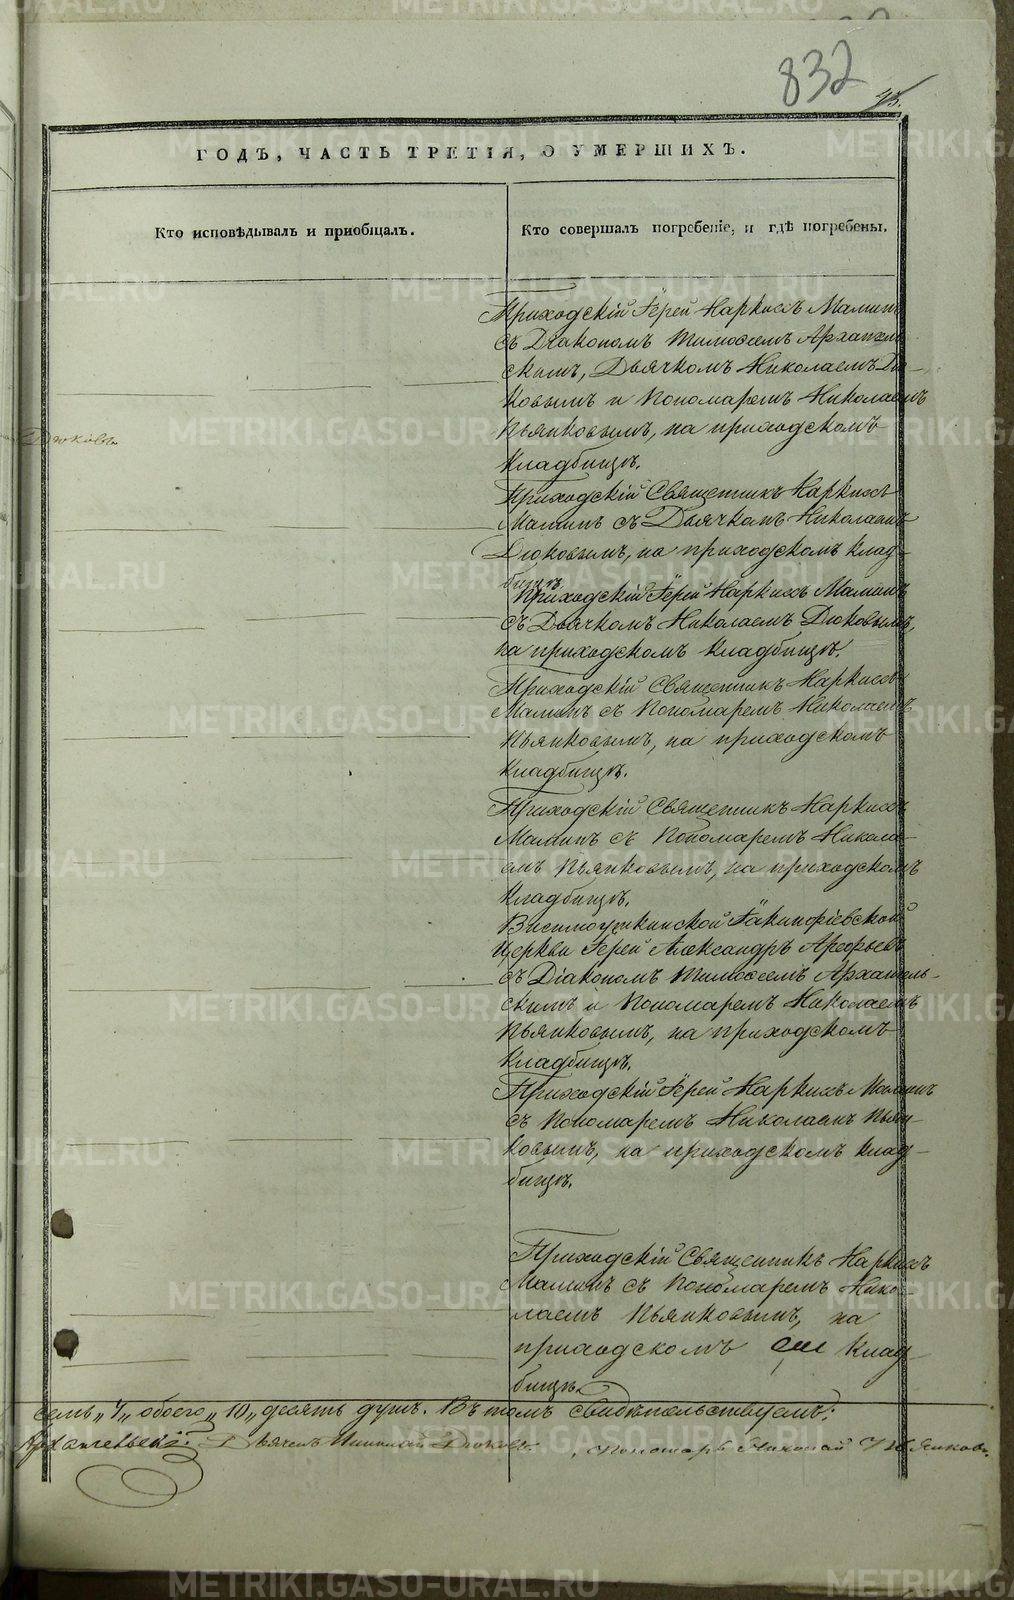 832
43.
ГОДЪ, ЧАСТЬ ТРЕТІЯ, О УМЕРШИХЪ.
Кто исповѣдывалъ и пріобщалъ.
Кто совершалъ погребеніе, и гдѣ погребены.
Приходскій Іерей Наркисъ Маминъ
съ Діакономъ Тимоѳеемъ Архангель
скимъ, Дьячкомъ Николаемъ Дю-
ковымъ и Пономаремъ Николаемъ
Дюковъ
Пьянковымъ, на приходскомъ
кладбищѣ.
Приходскій Священникъ Наркисъ
Маминъ съ Дьячкомъ Николаемъ
Дюковымъ, на приходскомъ клад-
бищѣ.
Приходскій Іерей Наркисъ Маминъ
съ Дьячкомъ Николаемъ Дюковымъ,
на приходскомъ кладбищѣ.
Приходскій Священникъ Наркисъ
Маминъ съ Пономаремъ Николаемъ
Пьянковымъ, на приходскомъ
кладбищѣ.
Приходскій Священникъ Наркисъ
Маминъ съ Пономаремъ Никола-
емъ Пьянковымъ, на приходскомъ
кладбищѣ.
Висимоуткинской Іакинфіевской
церкви Іерей Александръ Арефьевъ
съ Діакономъ Тимоѳеемъ Архангель-
скимъ и Пономаремъ Николаемъ
Пьянковымъ, на приходскомъ
кладбищѣ.
Приходскій Іерей Наркисъ Маминъ
съ Пономаремъ Николаемъ Пьян-
ковымъ, на приходскомъ клад-
бищѣ.
Приходскій Священникъ Наркисъ
Маминъ съ Пономаремъ Нико-
лаемъ Пьянковымъ, на
приходскомъ клад-
бищѣ.
семь „7„ обоего „10„ десять душъ. Въ томъ свидѣтельствуемъ:
Архангельскій. Дьячекъ Николай Дюковъ. Пономарь Николай Пьянковъ.
METRIKI.GASO-URAL.RU